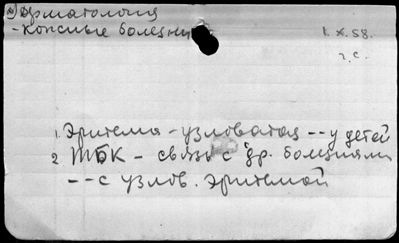 Дерматология
- Кожные болезни
1.X.58.
г.с.
1. Эритема - узловатая -- у детей
2 ТБК - связь с др. болезнями
-- с узлов. эритемой